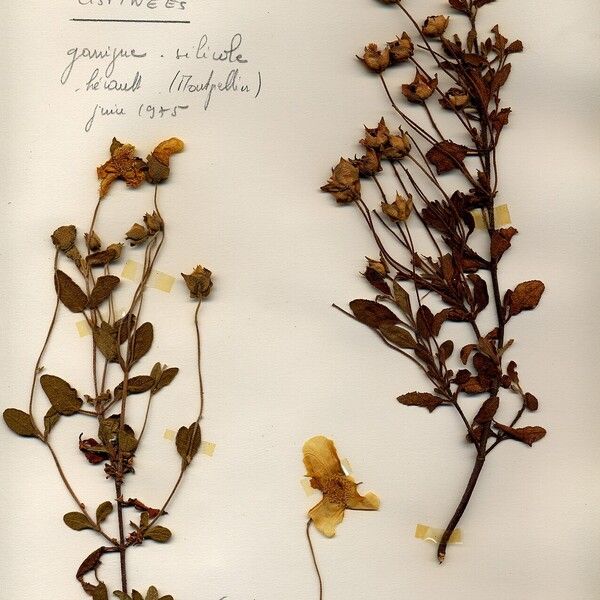 CISTINÉES
garrigue - silicole
Hérault (Montpellier)
juin 1975